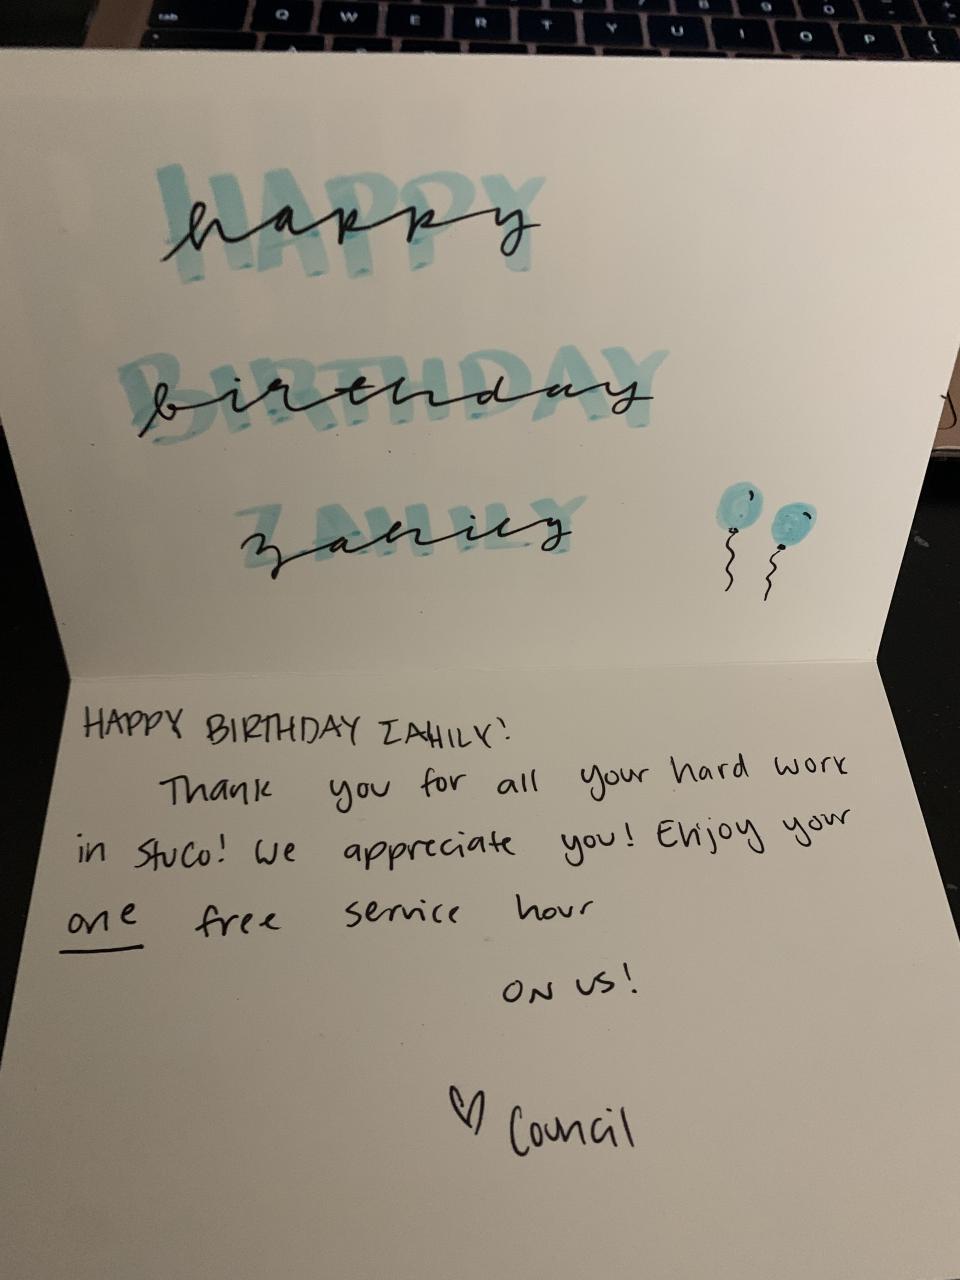 tab Q W E R T Y U I O P
HAPPY
happy
BIRTHDAY
birthday
ZAHILY
zahily
HAPPY BIRTHDAY ZAHILY!
Thank you for all your hard work
in StuCo! We appreciate you! Enjoy your
one free service hour
ON US!
♡ Council